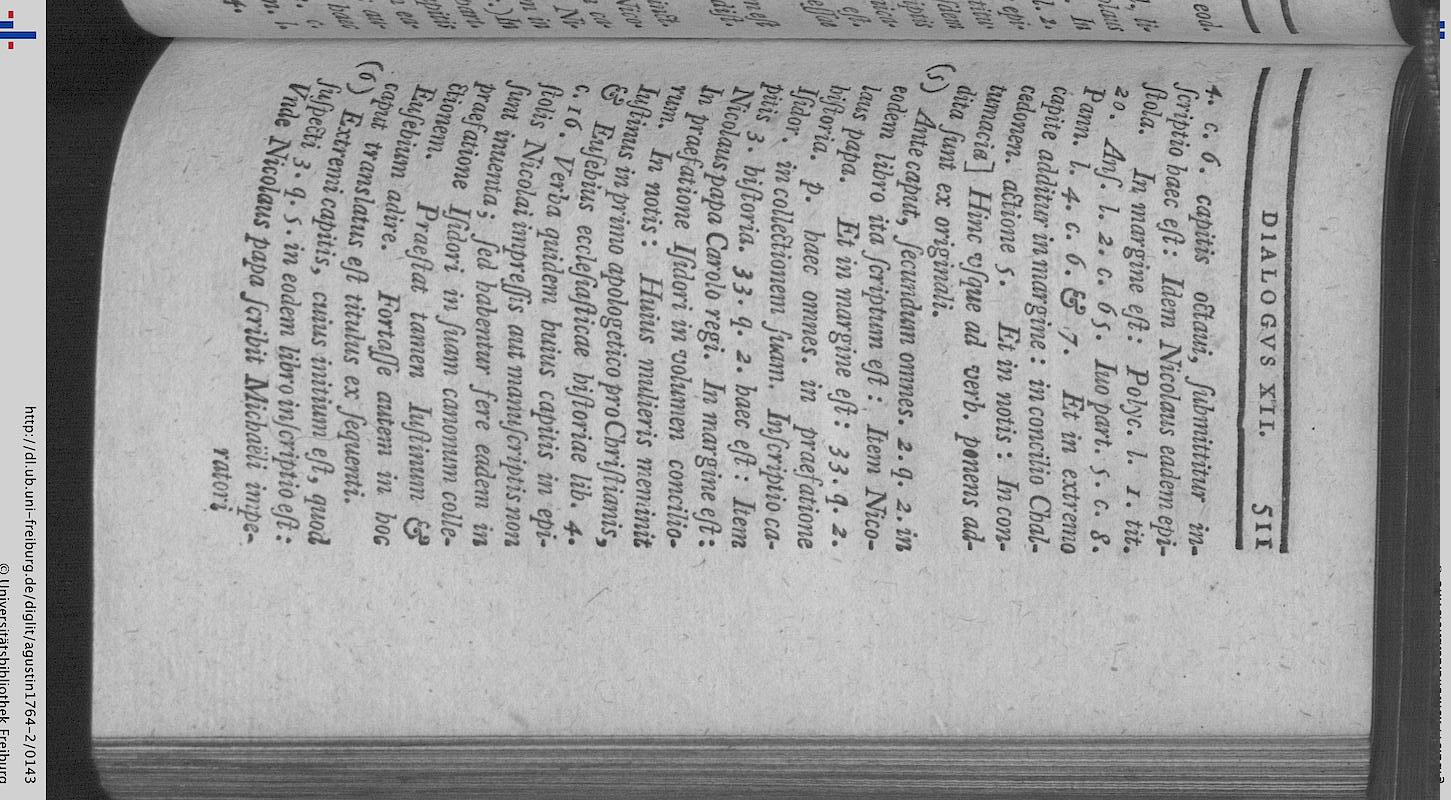 DIALOGVS XII. 511
4. c. 6. capitis octaui, ſubmittitur in-
ſcriptio haec eſt: Idem Nicolaus eadem epi-
ſtola. In margine eſt: Polyc. l. 1. tit.
20. Anſ. l. 2. c. 65. Iuo part. 5. c. 8.
Pann. l. 4. c. 6. & 7. Et in extremo
capite additur in margine: in concilio Chal-
cedonen. actione 5. Et in notis: In con-
tumacia] Hinc vſque ad verb. ponens ad-
dita ſunt ex originali.
(5) Ante caput, ſecundum omnes. 2. q. 2. in
eodem libro ita ſcriptum eſt: Item Nico-
laus papa. Et in margine eſt: 33. q. 2.
hiſtoria. p. haec omnes. in praefatione
Iſidor. in collectionem ſuam. Inſcriptio ca-
pitis 3. hiſtoria. 33. q. 2. haec eſt: Item
Nicolaus papa Carolo regi. In margine eſt:
In praefatione Iſidori in volumen concilio-
rum. In notis: Huius mulieris meminit
Iuſtinus in primo apologetico pro Chriſtianis,
& Euſebius eccleſiaſticae hiſtoriae lib. 4.
c. 16. Verba quidem huius capitis in epi-
ſtolis Nicolai impreſſis aut manuſcriptis non
ſunt inuenta; ſed habentur fere eadem in
praefatione Iſidori in ſuam canonum colle-
ctionem. Praeſtat tamen Iuſtinum &
Euſebium adire. Fortaſſe autem in hoc
caput translatus eſt titulus ex ſequenti.
(6) Extremi capitis, cuius initium eſt, quod
ſuſpecti, 3. q. 5. in eodem libro inſcriptio eſt:
Vnde Nicolaus papa ſcribit Michaeli impe-
ratori
http://dl.ub.uni-freiburg.de/diglit/agustin1764-2/0143
© Universitätsbibliothek Freiburg